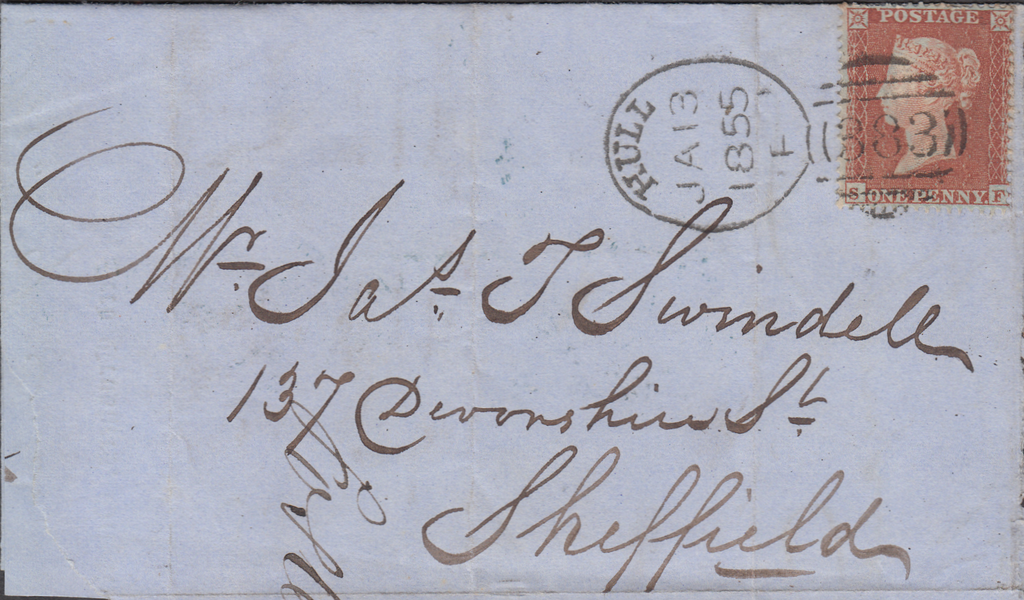 POSTAGE
HULL
JA 13
1855
F
383
S ONE PENNY. F
Mr Jas T Swindell
137 Devonshire St
Sheffield